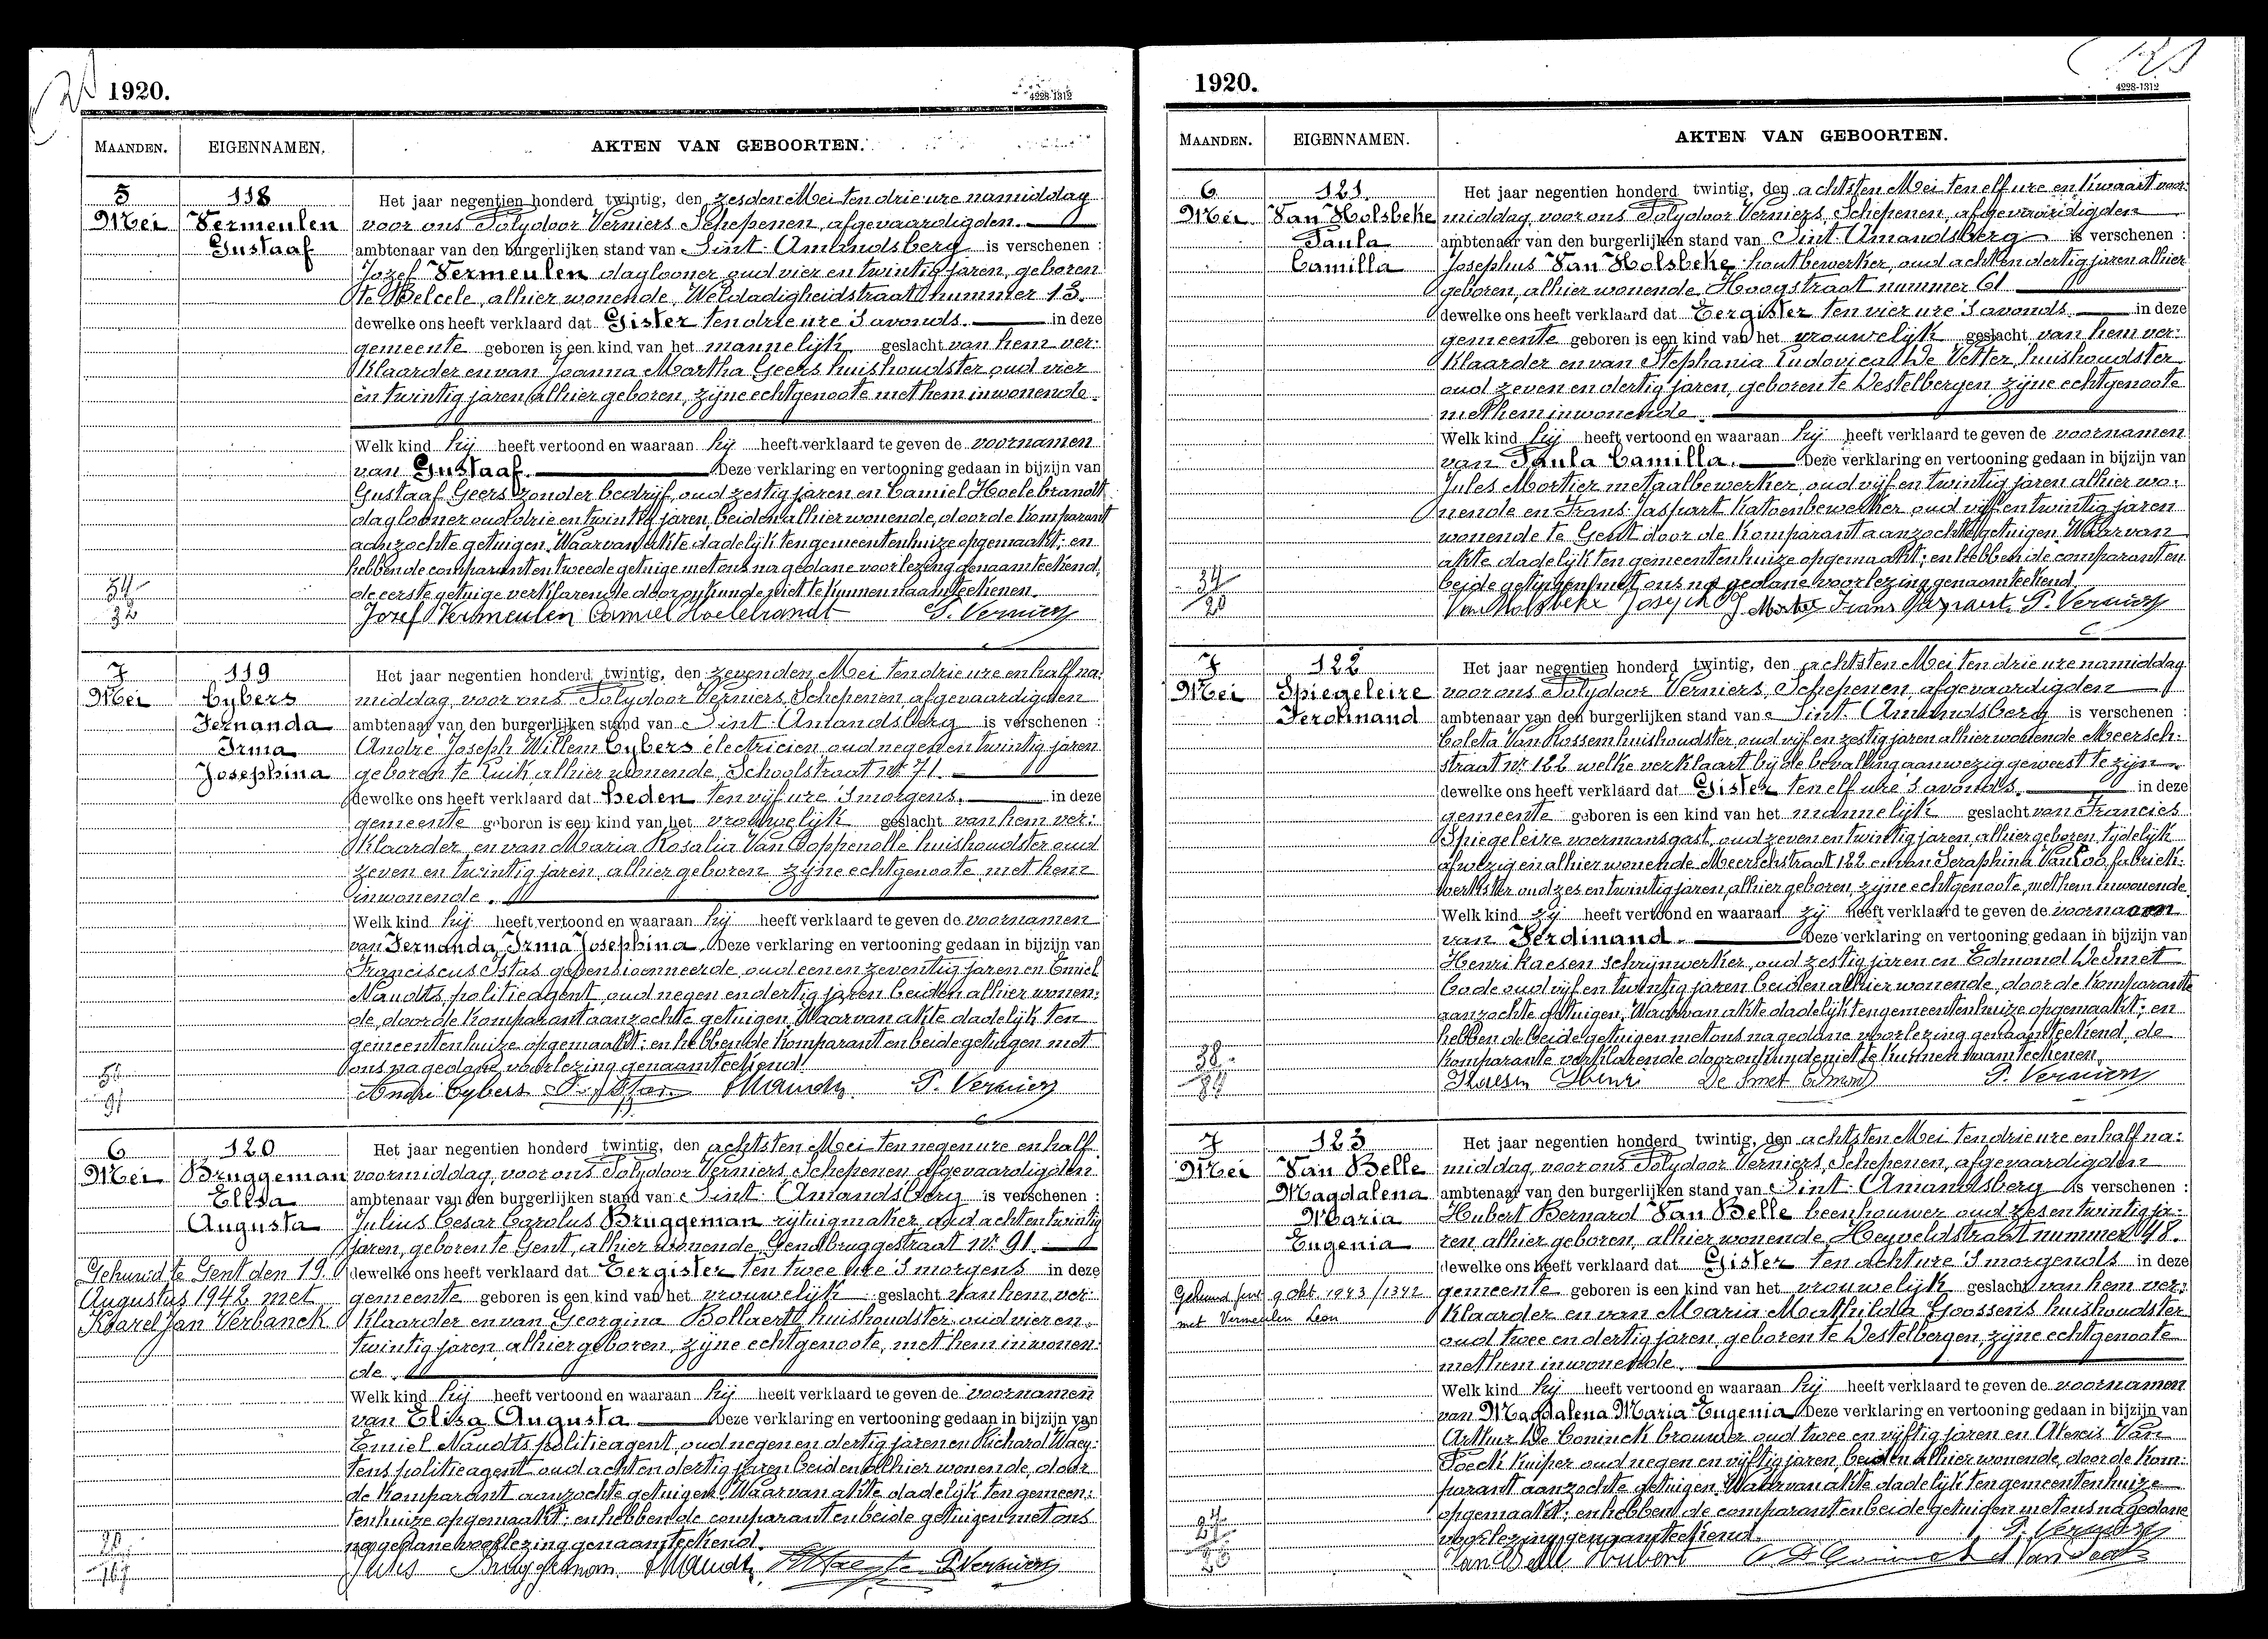 1920.
4228-1312
MAANDEN.
EIGENNAMEN.
AKTEN VAN GEBOORTEN.
5
Mei
118
Vermeulen
Gustaaf
Het jaar negentien honderd twintig, den zesden Mei ten drie ure namiddag
voor ons Polydoor Verniers, Schepenen, afgevaardigden
ambtenaar van den burgerlijken stand van Sint-Amandsberg is verschenen :
Jozef Vermeulen daglooner oud vier en twintig jaren, geboren
te Belcele, alhier wonende, Weldadigheidstraat nummer 13.
dewelke ons heeft verklaard dat Gister ten drie ure 's avonds. in deze
gemeente geboren is een kind van het mannelijk geslacht van hem ver:
klaarder en van Joanna Martha Geers huishoudster oud vier
en twintig jaren alhier geboren, zijne echtgenoote met hem inwonende.
Welk kind hij heeft vertoond en waaraan hij heeft verklaard te geven de voornamen
van Gustaaf. Deze verklaring en vertooning gedaan in bijzijn van
Gustaaf Geers zonder bedrijf, oud zestig jaren en Camiel Hoelebrandt
daglooner oud drie en twintig jaren, beiden alhier wonende, door de komparant
aanzochte getuigen. Waarvan akte dadelijk ten gemeentenhuize opgemaakt; en
hebben de comparant en tweede getuige met ons na gedane voorlezing genaamteekend,
de eerste getuige verklarende door onkunde niet te kunnen naamteekenen.
34
32
Jozef Vermeulen Camiel Hoelebrandt P. Verniers
7
Mei
119
Cybers
Fernanda
Irma
Josephina
Het jaar negentien honderd twintig, den zevenden Mei ten drie ure en half na:
middag, voor ons Polydoor Verniers, Schepenen, afgevaardigden
ambtenaar van den burgerlijken stand van Sint-Amandsberg is verschenen :
André Joseph Willem Cybers électricien oud negen en twintig jaren
geboren te Luik, alhier wonende, Schoolstraat Nr 71.
dewelke ons heeft verklaard dat heden ten vijf ure 's morgens. in deze
gemeente geboren is een kind van het vrouwelijk geslacht van hem ver:
klaarder en van Maria Rosalia Van Poppenolle huishoudster oud
zeven en twintig jaren, alhier geboren zijne echtgenoote met hem
inwonende.
Welk kind hij heeft vertoond en waaraan hij heeft verklaard te geven de voornamen
van Fernanda, Irma Josephina. Deze verklaring en vertooning gedaan in bijzijn van
Franciscus Istas gepensionneerde, oud een en zeventig jaren en Emiel
Naudts, politieagent, oud negen en dertig jaren beiden alhier wonen:
de, door de komparant aanzochte getuigen. Waarvan akte dadelijk ten
gemeentenhuize opgemaakt: en hebben de komparant en beide getuigen met
ons na gedane voorlezing genaamteekend.
91
André Cybers P. Verniers
6
Mei
120
Bruggeman
Elisa
Augusta
Gehuwd te Gent den 19
Augustus 1942 met
Karel Jan Verbanck
Het jaar negentien honderd twintig, den achtsten Mei ten negen ure en half
voormiddag, voor ons Polydoor Verniers, Schepenen, afgevaardigden
ambtenaar van den burgerlijken stand van Sint-Amandsberg is verschenen :
Julius Cesar Carolus Bruggeman rijtuigmaker, oud acht en twintig
jaren, geboren te Gent, alhier wonende, Gendbruggestraat Nr 91.
dewelke ons heeft verklaard dat Eergister ten twee ure 's morgens in deze
gemeente geboren is een kind van het vrouwelijk geslacht van hem ver:
klaarder en van Georgina Bollaert huishoudster oud vier en
twintig jaren, alhier geboren, zijne echtgenoote, met hem inwonen:
de.
Welk kind hij heeft vertoond en waaraan hij heeft verklaard te geven de voornamen
van Elisa Augusta Deze verklaring en vertooning gedaan in bijzijn van
Emiel Naudts politieagent, oud negen en dertig jaren en Richard Waey:
tens politieagent oud acht en dertig jaren beiden alhier wonende, door
de komparant aanzochte getuigen. Waarvan akte dadelijk ten gemeen:
tenhuize opgemaakt: en hebben de comparant en beide getuigen met ons
na gedane voorlezing genaamteekend.
Jules Bruggeman P. Verniers
1920.
4228-1312
MAANDEN.
EIGENNAMEN.
AKTEN VAN GEBOORTEN.
6
Mei
121
Van Holsbeke
Paula
Camilla
Het jaar negentien honderd twintig, den achtsten Mei ten elf ure en kwaart voor:
middag, voor ons Polydoor Verniers, Schepenen, afgevaardigden
ambtenaar van den burgerlijken stand van Sint-Amandsberg is verschenen :
Josephus Van Holsbeke houtbewerker, oud acht en dertig jaren alhier
geboren, alhier wonende, Hoogstraat nummer 61
dewelke ons heeft verklaard dat Eergister ten vier ure 's avonds. in deze
gemeente geboren is een kind van het vrouwelijk geslacht van hem ver:
klaarder en van Stephania Ludovica De Vetter, huishoudster
oud zeven en dertig jaren, geboren te Destelbergen zijne echtgenoote
met hem inwonende.
Welk kind hij heeft vertoond en waaraan hij heeft verklaard te geven de voornamen
van Paula Camilla. Deze verklaring en vertooning gedaan in bijzijn van
Jules Mortier metaalbewerker, oud vijf en twintig jaren alhier wo:
nende en Frans Jaspart katoenbewerker oud vijf en twintig jaren
wonende te Gent door de komparant aanzochte getuigen. Waarvan
akte dadelijk ten gemeentenhuize opgemaakt; en hebben de comparant en
beide getuigen met ons na gedane voorlezing genaamteekend.
34
20
Van Holsbeke Joseph J. Mortier Frans Jaspart P. Verniers
7
Mei
122
Spiegeleire
Ferdinand
Het jaar negentien honderd twintig, den achtsten Mei ten drie ure namiddag
voor ons Polydoor Verniers, Schepenen afgevaardigden
ambtenaar van den burgerlijken stand van Sint-Amandsberg is verschenen :
Coleta Van Rossem huishoudster, oud vijf en zestig jaren alhier wonende Meersch:
straat Nr 122 welke verklaart bij de bevalling aanwezig geweest te zijn.
dewelke ons heeft verklaard dat Gister ten elf ure 's avonds. in deze
gemeente geboren is een kind van het mannelijk geslacht van Francies
Spiegeleire voermansgast, oud zeven en twintig jaren, alhier geboren, tijdelijk
afwezig en alhier wonende Meerschstraat 122 en van Seraphina Van Loo fabriek:
werkster oud zes en twintig jaren, alhier geboren, zijne echtgenoote, met hem inwonende.
Welk kind zij heeft vertoond en waaraan zij heeft verklaard te geven de voornaam
van Ferdinand. Deze verklaring en vertooning gedaan in bijzijn van
Henri Kaesen schrijnwerker, oud zestig jaren en Edmond De Smet
bode oud vijf en twintig jaren beiden alhier wonende, door de komparante
aanzochte getuigen. Waarvan akte dadelijk ten gemeentenhuize opgemaakt; en
hebben de beide getuigen met ons na gedane voorlezing genaamteekend, de
komparante verklarende door onkunde niet te kunnen naamteekenen.
38
Kaesen Henri De Smet Edmond P. Verniers
7
Mei
123
Van Belle
Magdalena
Maria
Eugenia
Gehuwd 9 Okt. 1943 / 1342
met Vermeulen Leon
Het jaar negentien honderd twintig, den achtsten Mei ten drie ure en half na:
middag, voor ons Polydoor Verniers, Schepenen, afgevaardigden
ambtenaar van den burgerlijken stand van Sint-Amandsberg is verschenen :
Hubert Bernard Van Belle beenhouwer oud zes en twintig ja:
ren alhier geboren, alhier wonende, Heyveldstraat nummer 48.
dewelke ons heeft verklaard dat Gister ten acht ure 's morgends in deze
gemeente geboren is een kind van het vrouwelijk geslacht van hem ver:
klaarder en van Maria Mathilda Goossens huishoudster
oud twee en dertig jaren, geboren te Destelbergen, zijne echtgenoote
met hem inwonende.
Welk kind hij heeft vertoond en waaraan hij heeft verklaard te geven de voornamen
van Magdalena Maria Eugenia. Deze verklaring en vertooning gedaan in bijzijn van
Arthur De Coninck brouwer oud twee en vijftig jaren en Alexis Van
Poeck kuiper oud negen en vijftig jaren, beiden alhier wonende, door de kom:
parant aanzochte getuigen. Waarvan akte dadelijk ten gemeentenhuize
opgemaakt; en hebben de comparant en beide getuigen met ons na gedane
voorlezing genaamteekend.
P. Verniers
Van Belle Hubert